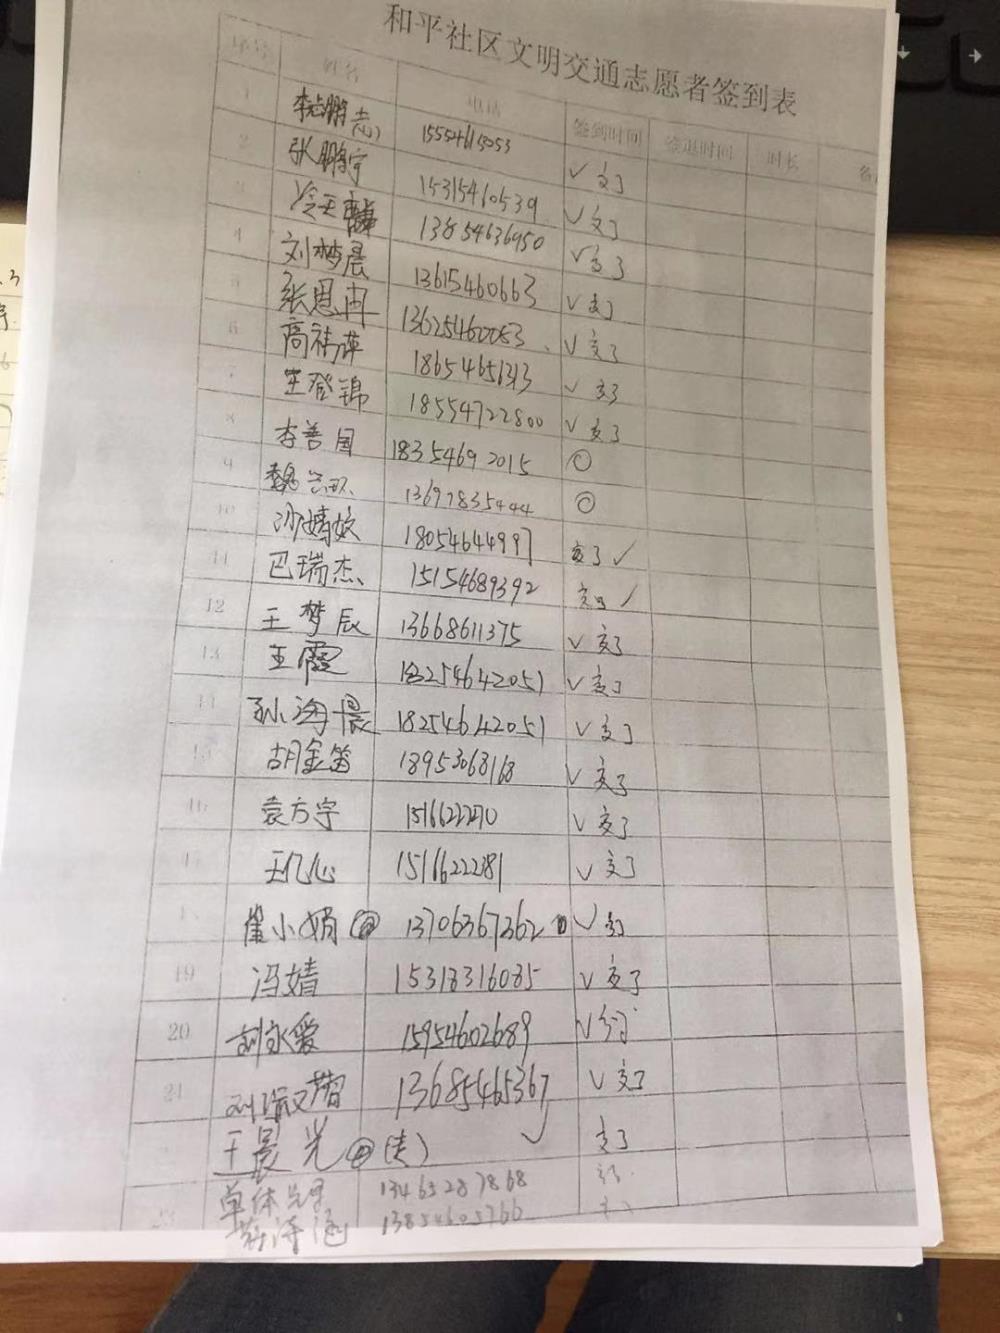 和平社区文明交通志愿者签到表
序号 姓名 电话 签到时间 签退时间 时长
1 李鹏志 15554615053 √ 交了
2 张鹏宇 15315460539 √ 交了
3 13854636950 √ 交了
4 刘梦晨 13615460663 √ 交了
5 张思冉 13625460053 √ 交了
6 高祎萍 18654651313 √ 交了
7 王登锦 18554722800 √ 交了
8 李善国 18354692015 ○
9 魏 13697835444 ○
10 沙婧姣 18054644997 交了 √
11 巴瑞杰 15154689392 交了 √
12 王梦辰 13668611375 √ 交了
13 王霞 18254642051 √ 交了
14 孙海晨 18254642051 √ 交了
15 胡金笛 18953068168 √ 交了
16 袁方宇 1516622270 √ 交了
17 王亿心 1516622281 √ 交了
18 崔小娟 13706367362 √ 交了
19 冯婧 15318316085 √ 交了
20 胡永爱 15954602689 √
21 刘 13685465367 √ 交了
王晨光 (夫) √ 交了
单体 13465287868
23 13854605766